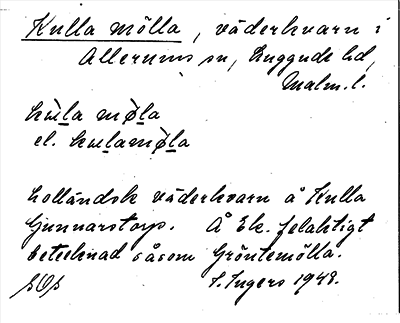 Kulla mölla, väderkvarn i
Allerums sn, Luggude hd,
Malm. l.
kùla mø̀la
el. kulamø̀la
holländsk väderkvarn å Kulla
Gunnarstorp. Å Ek. felaktigt
betecknad såsom Gröntemölla.
I. Ingers 1948.